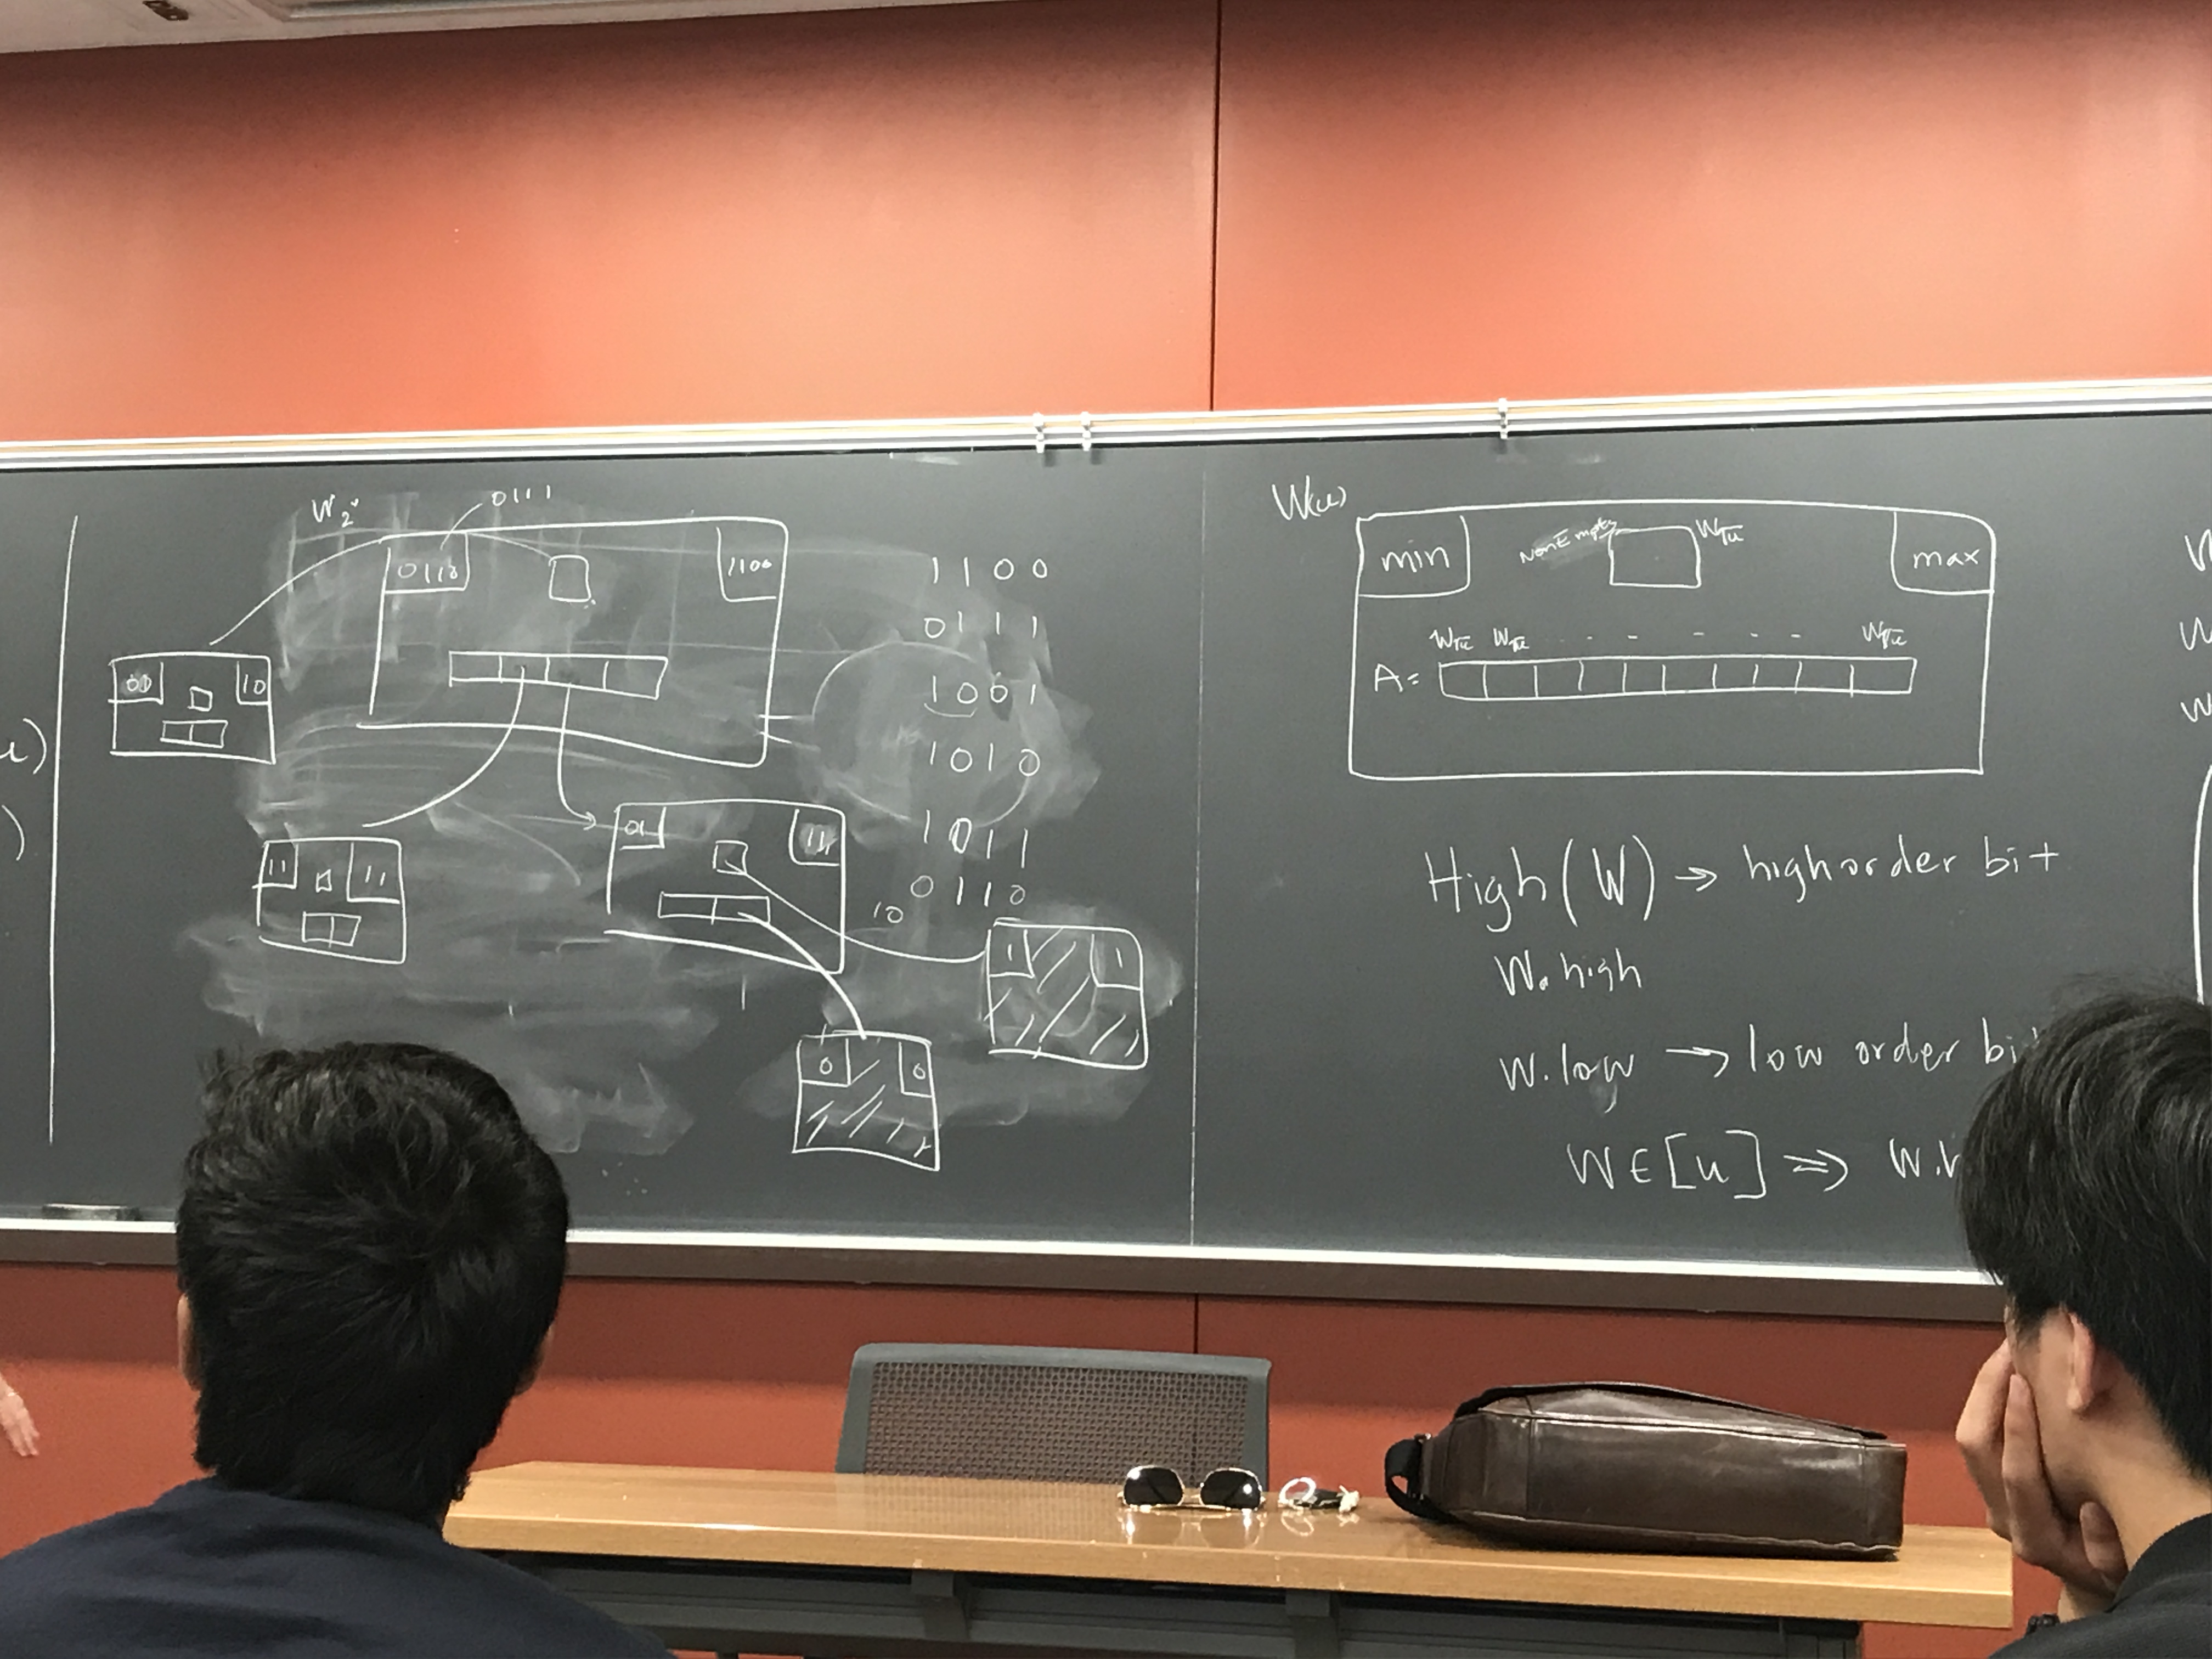 0111
0110
1100
00
10
11
11
01
11
10
1
1
0
0
1100
0111
1001
1010
1011
0110
W(u)
min
NonEmpty
W√u
max
W√u W√u - - - - - - W√u
A =
High(W) → high order bit
W.high
W.low → low order bi
W ∈ [u] ⇒ W.
u)
)
W
W
W